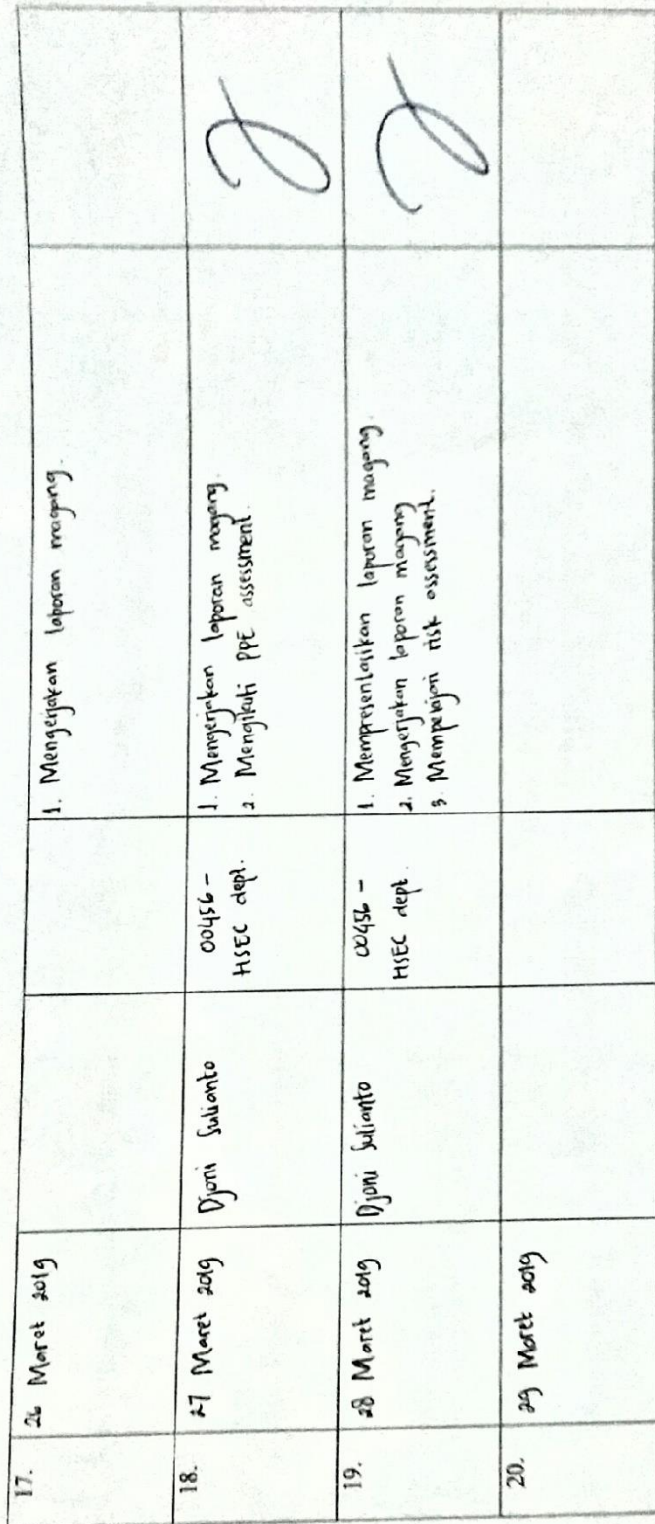 17.
26 Maret 2019
1. Mengerjakan laporan magang.
18.
27 Maret 2019
Djoni Sulianto
00456 -
HSEC dept.
1. Mengerjakan laporan magang.
2. Mengikuti PPE assessment.
19.
28 Maret 2019
Djoni Sulianto
00456 -
HSEC dept.
1. Mempresentasikan laporan magang.
2. Mengerjakan laporan magang
3. Mempelajari risk assessment.
20.
29 Maret 2019